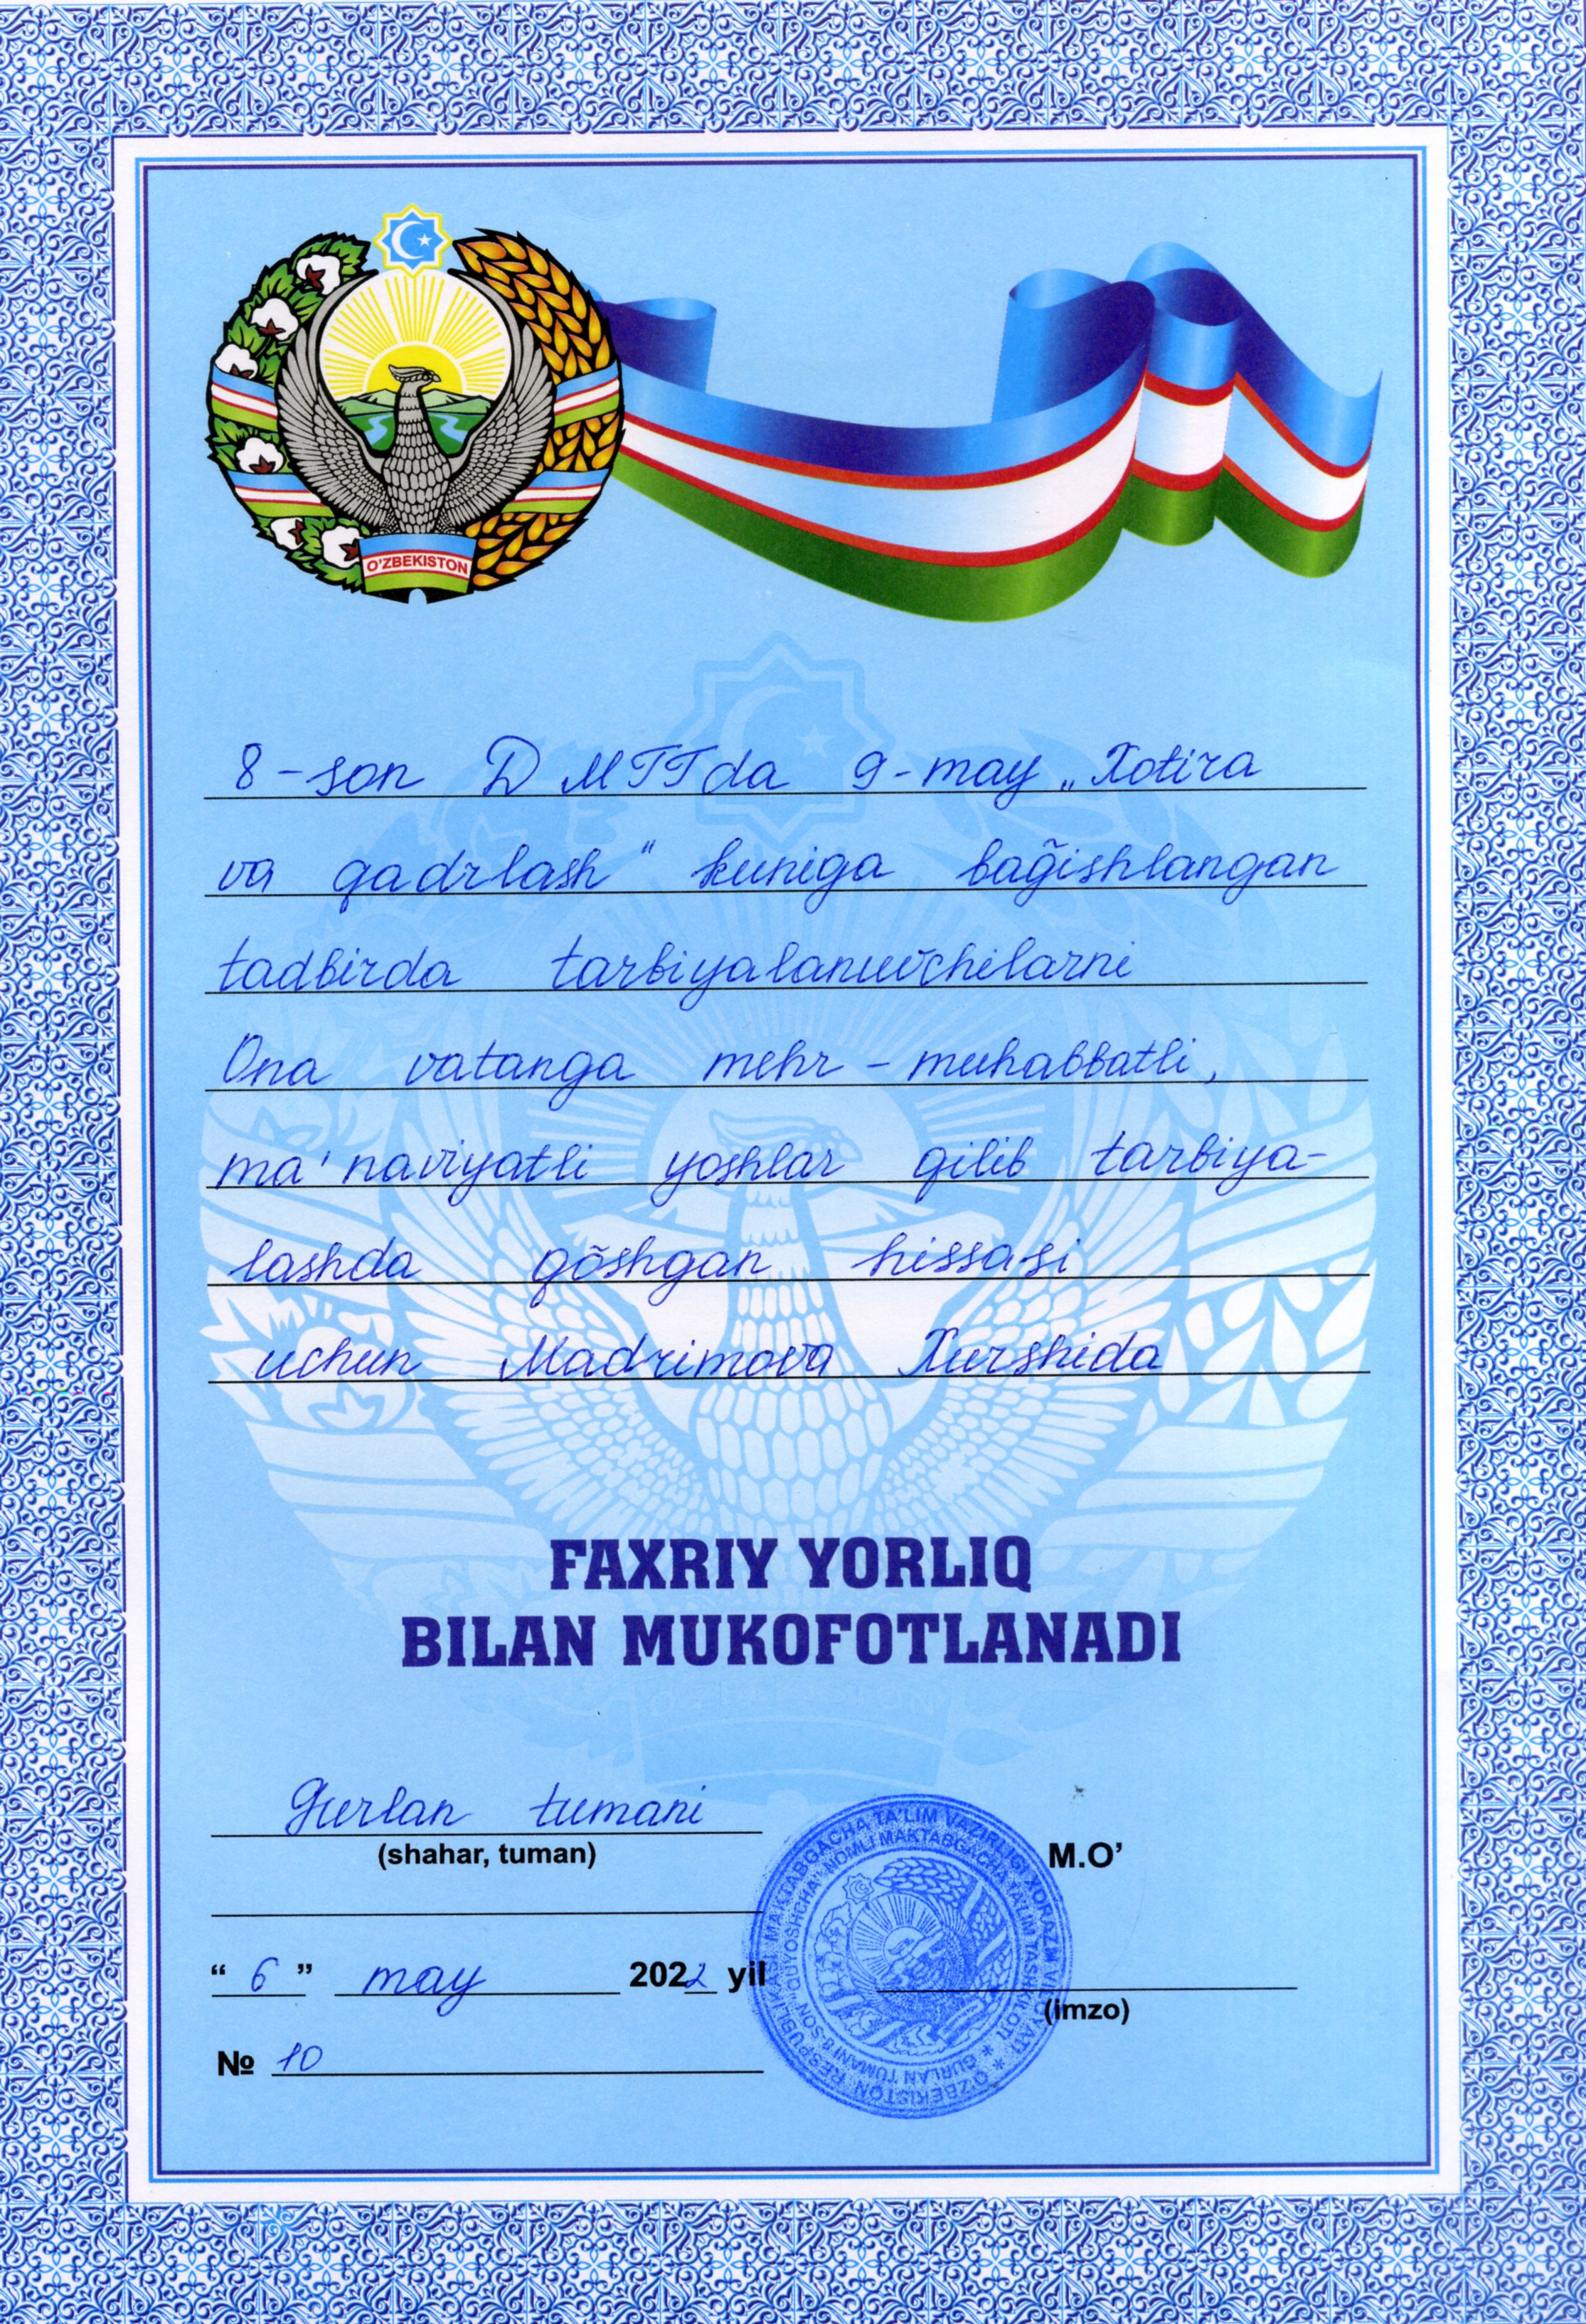 O'ZBEKISTON
8-son DMTTda 9-may „Xotira
va qadrlash" kuniga bag̃ishlangan
tadbirda tarbiyalanuvchilarni
Ona vatanga mehr-muhabbatli,
ma'naviyatli yoshlar qilib tarbiya-
lashda qõshgan hissasi
uchun Madrimova Xurshida
FAXRIY YORLIQ
BILAN MUKOFOTLANADI
Gurlan tumani
(shahar, tuman)
M.O’
“ 6 ” may 2022 yil
(imzo)
№ 10
O'ZBEKISTON RESPUBLIKASI MAKTABGACHA TA'LIM VAZIRLIGI XORAZM VILOYATI
GURLAN TUMANI 8-SON "QUYOSHCHA" NOMLI MAKTABGACHA TA'LIM TASHKILOTI